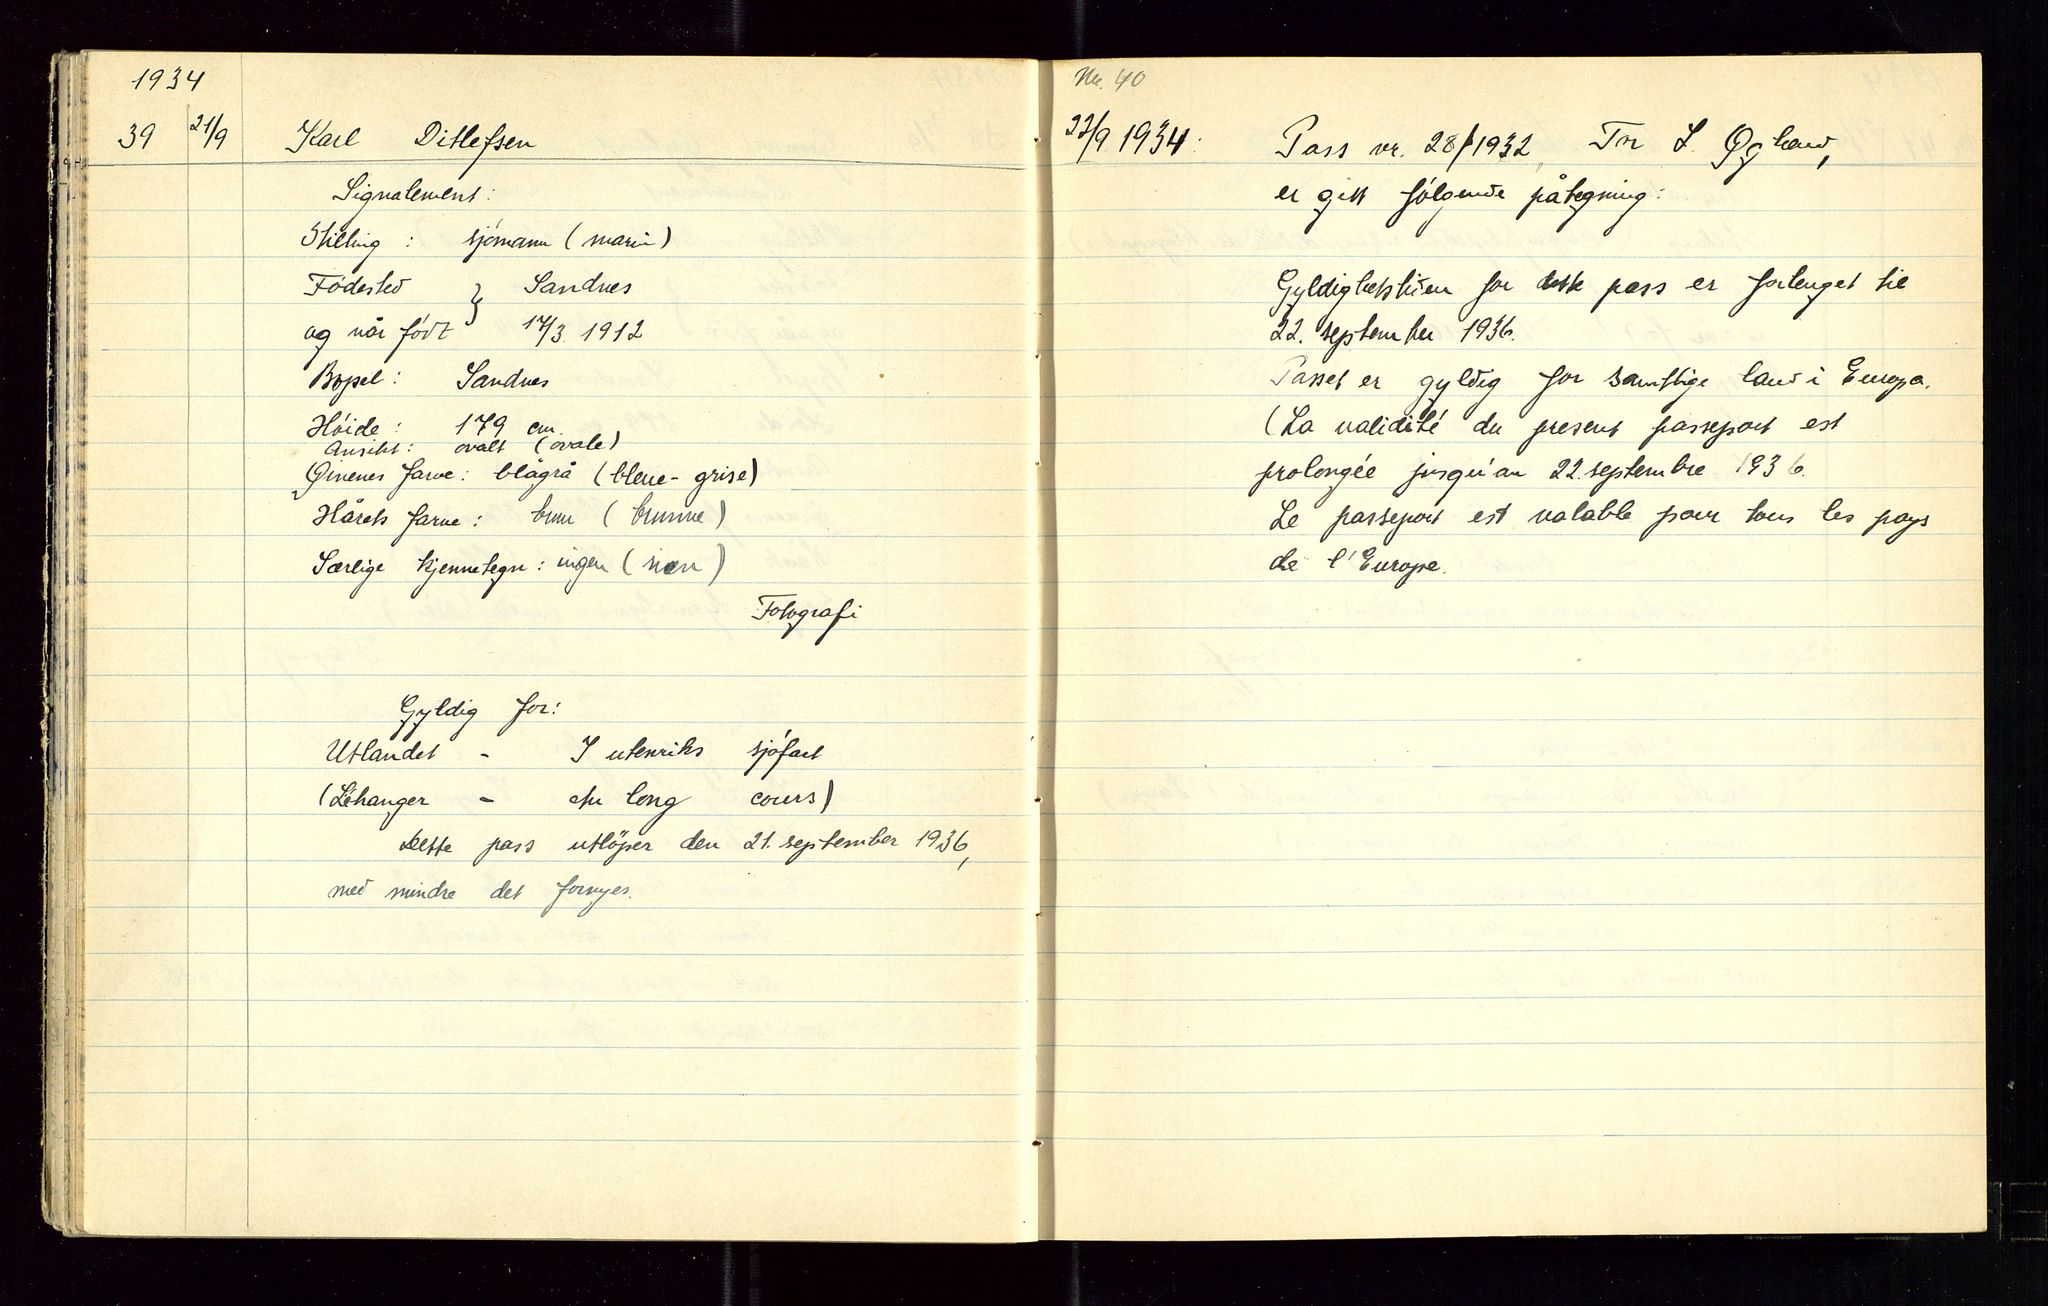 1934
39 21/9 Karl Ditlefsen
Signalement:
Stilling: sjömann (marin)
Födested } Sandnes
og når födt 17/3. 1912
Bopel: Sandnes
Höide: 179 cm.
Ansikt: ovalt (ovale)
Öinenes farve: blågrå (bleue-grise)
Hårets farve: brun (brunne)
Særlige kjennetegn: ingen (non)
Fotografi
Gyldig for:
Utlandet - I utenriks sjöfart
(L'éhanger - au long cours)
Dette pass utlöper den 21. september 1936,
med mindre det fornyes.
Nr. 40
22/9 1934: Pass nr. 28/1932, Tor S. Øgland,
er gitt fölgende påtegning:
Gyldighetstiden for dette pass er forlenget til
22. september 1936.
Passet er gyldig for samtlige land i Europa.
(La validité du present passeport est
prolongée jusqu'au 22. septembre 1936.
Le passeport est valable pour tous les pays
de l'Europe.